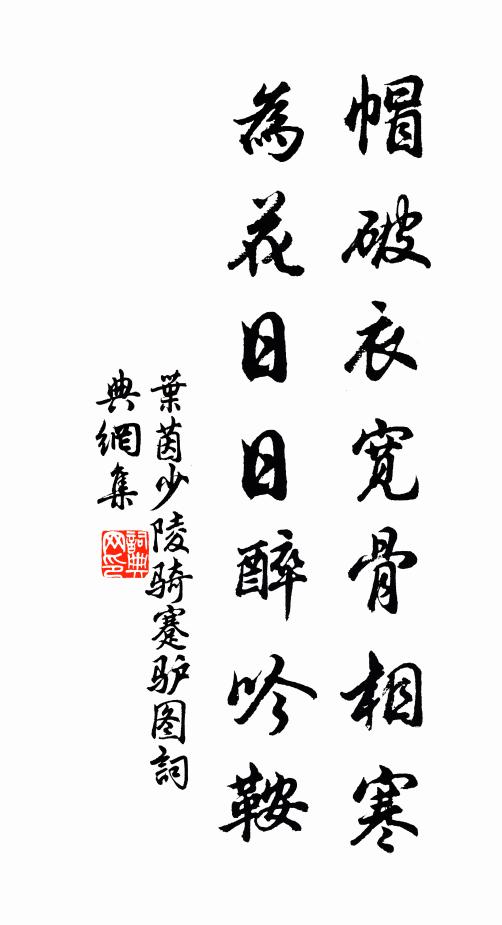 帽破衣宽骨相寒
為花日日醉吟鞍
葉茵少陵骑蹇驴图詞
典網集
詞典网印